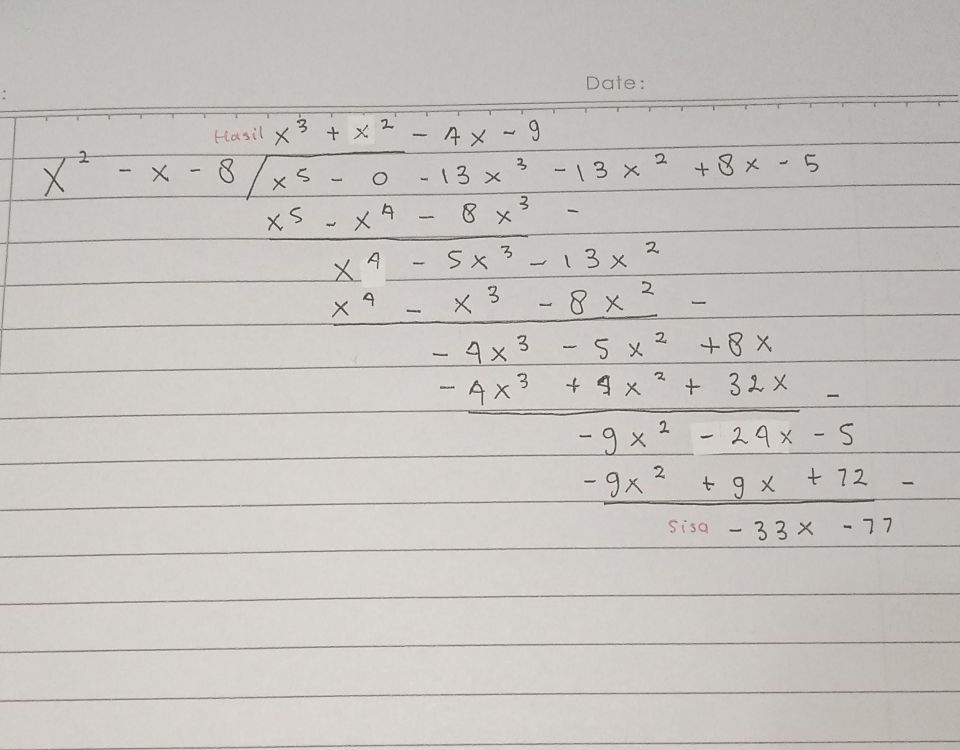 Date:
Hasil x³ + x² - 4x - 9
x² - x - 8 / x⁵ - 0 - 13x³ - 13x² + 8x - 5
x⁵ - x⁴ - 8x³ -
x⁴ - 5x³ - 13x²
x⁴ - x³ - 8x² -
- 4x³ - 5x² + 8x
- 4x³ + 4x² + 32x -
- 9x² - 24x - 5
- 9x² + 9x + 72 -
Sisa - 33x - 77